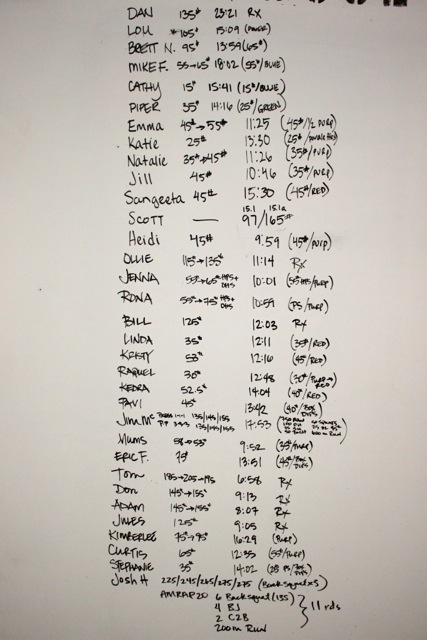 DAN 135# 23:21 RX
LOU *105# 15:09 (POWER)
BRETT N. 95# 13:59 (65#)
MIKE F. 55→65# 18:02 (55#/BLUE)
CATHY 15# 15:41 (15#/BLUE)
PIPER 35# 14:16 (25#/GREEN)
Emma 45#→55# 11:25 (45#/½ PURP)
Katie 25# 13:30 (25#
Natalie 35#→45# 11:26 (35#/PURP)
Jill 45# 10:46 (35#/PURP)
Sangeeta 45# 15:30 (45#/RED)
15.1 15.1a
SCOTT — 97/165#
Heidi 45# 9:59 (45#/PURP)
OLLIE 115#→135# 11:14 Rx
JENNA 55#→65# 10:01
RONA 55#→75# 10:59 (PS/PURP)
BILL 125# 12:03 Rx
LINDA 35# 12:11 (35#/RED)
KRISTY 53# 12:16 (45#/RED)
RAQUEL 30# 12:48
KEDRA 52.5# 14:04 (45#/RED)
PAVI 45# 13:42 (40#/BOX DIPS)
Jim M° 135/145/155 17:53
Mums 53→55# 9:52 (35#/PURP)
ERIC F. 75# 13:51 (45#/BOX DIPS)
Tom 185→205→195 6:58 Rx
Don 145#→155# 9:13 Rx
ADAM 145#→155# 8:07 Rx
JULES 125# 9:05 Rx
KIMBERLEE 75#→95# 16:29 (PURP)
CURTIS 65# 12:35 (55#/PURP)
STEPHANIE 35# 14:02
Josh H 225/245/265/275/275 (Back squat x5)
AMRAP 20 6 Back squat (135)
4 BJ
2 C2B
200m Run
} 11 rds